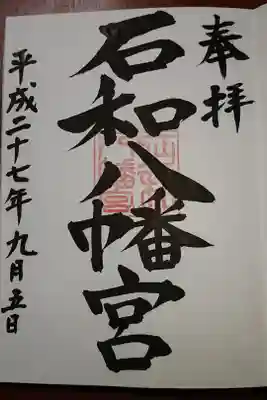 奉拝
石和八幡宮
平成二十七年九月五日